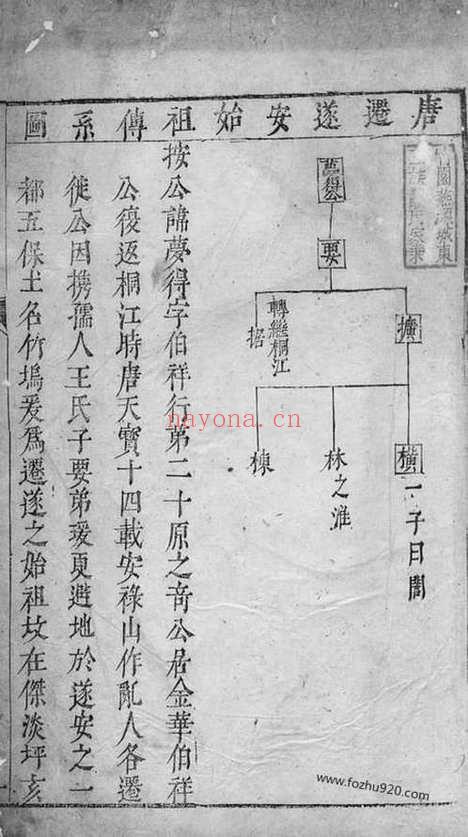 唐遷遂安始祖傳系圖
夢得公
要
擴
轉繼桐江
招
橫 一子日閏
林之淮
棟
按公諱夢得字伯祥行第二十原之奇公居金華伯祥
公復返桐江時唐天寶十四載安祿山作亂人各遷
徙公因携孺人王氏子要弟瑗更避地於遂安之一
都五保土名竹塢爰為遷遂之始祖坟在傑淡坪亥
nayona.cn
https://www.fozhu920.com/